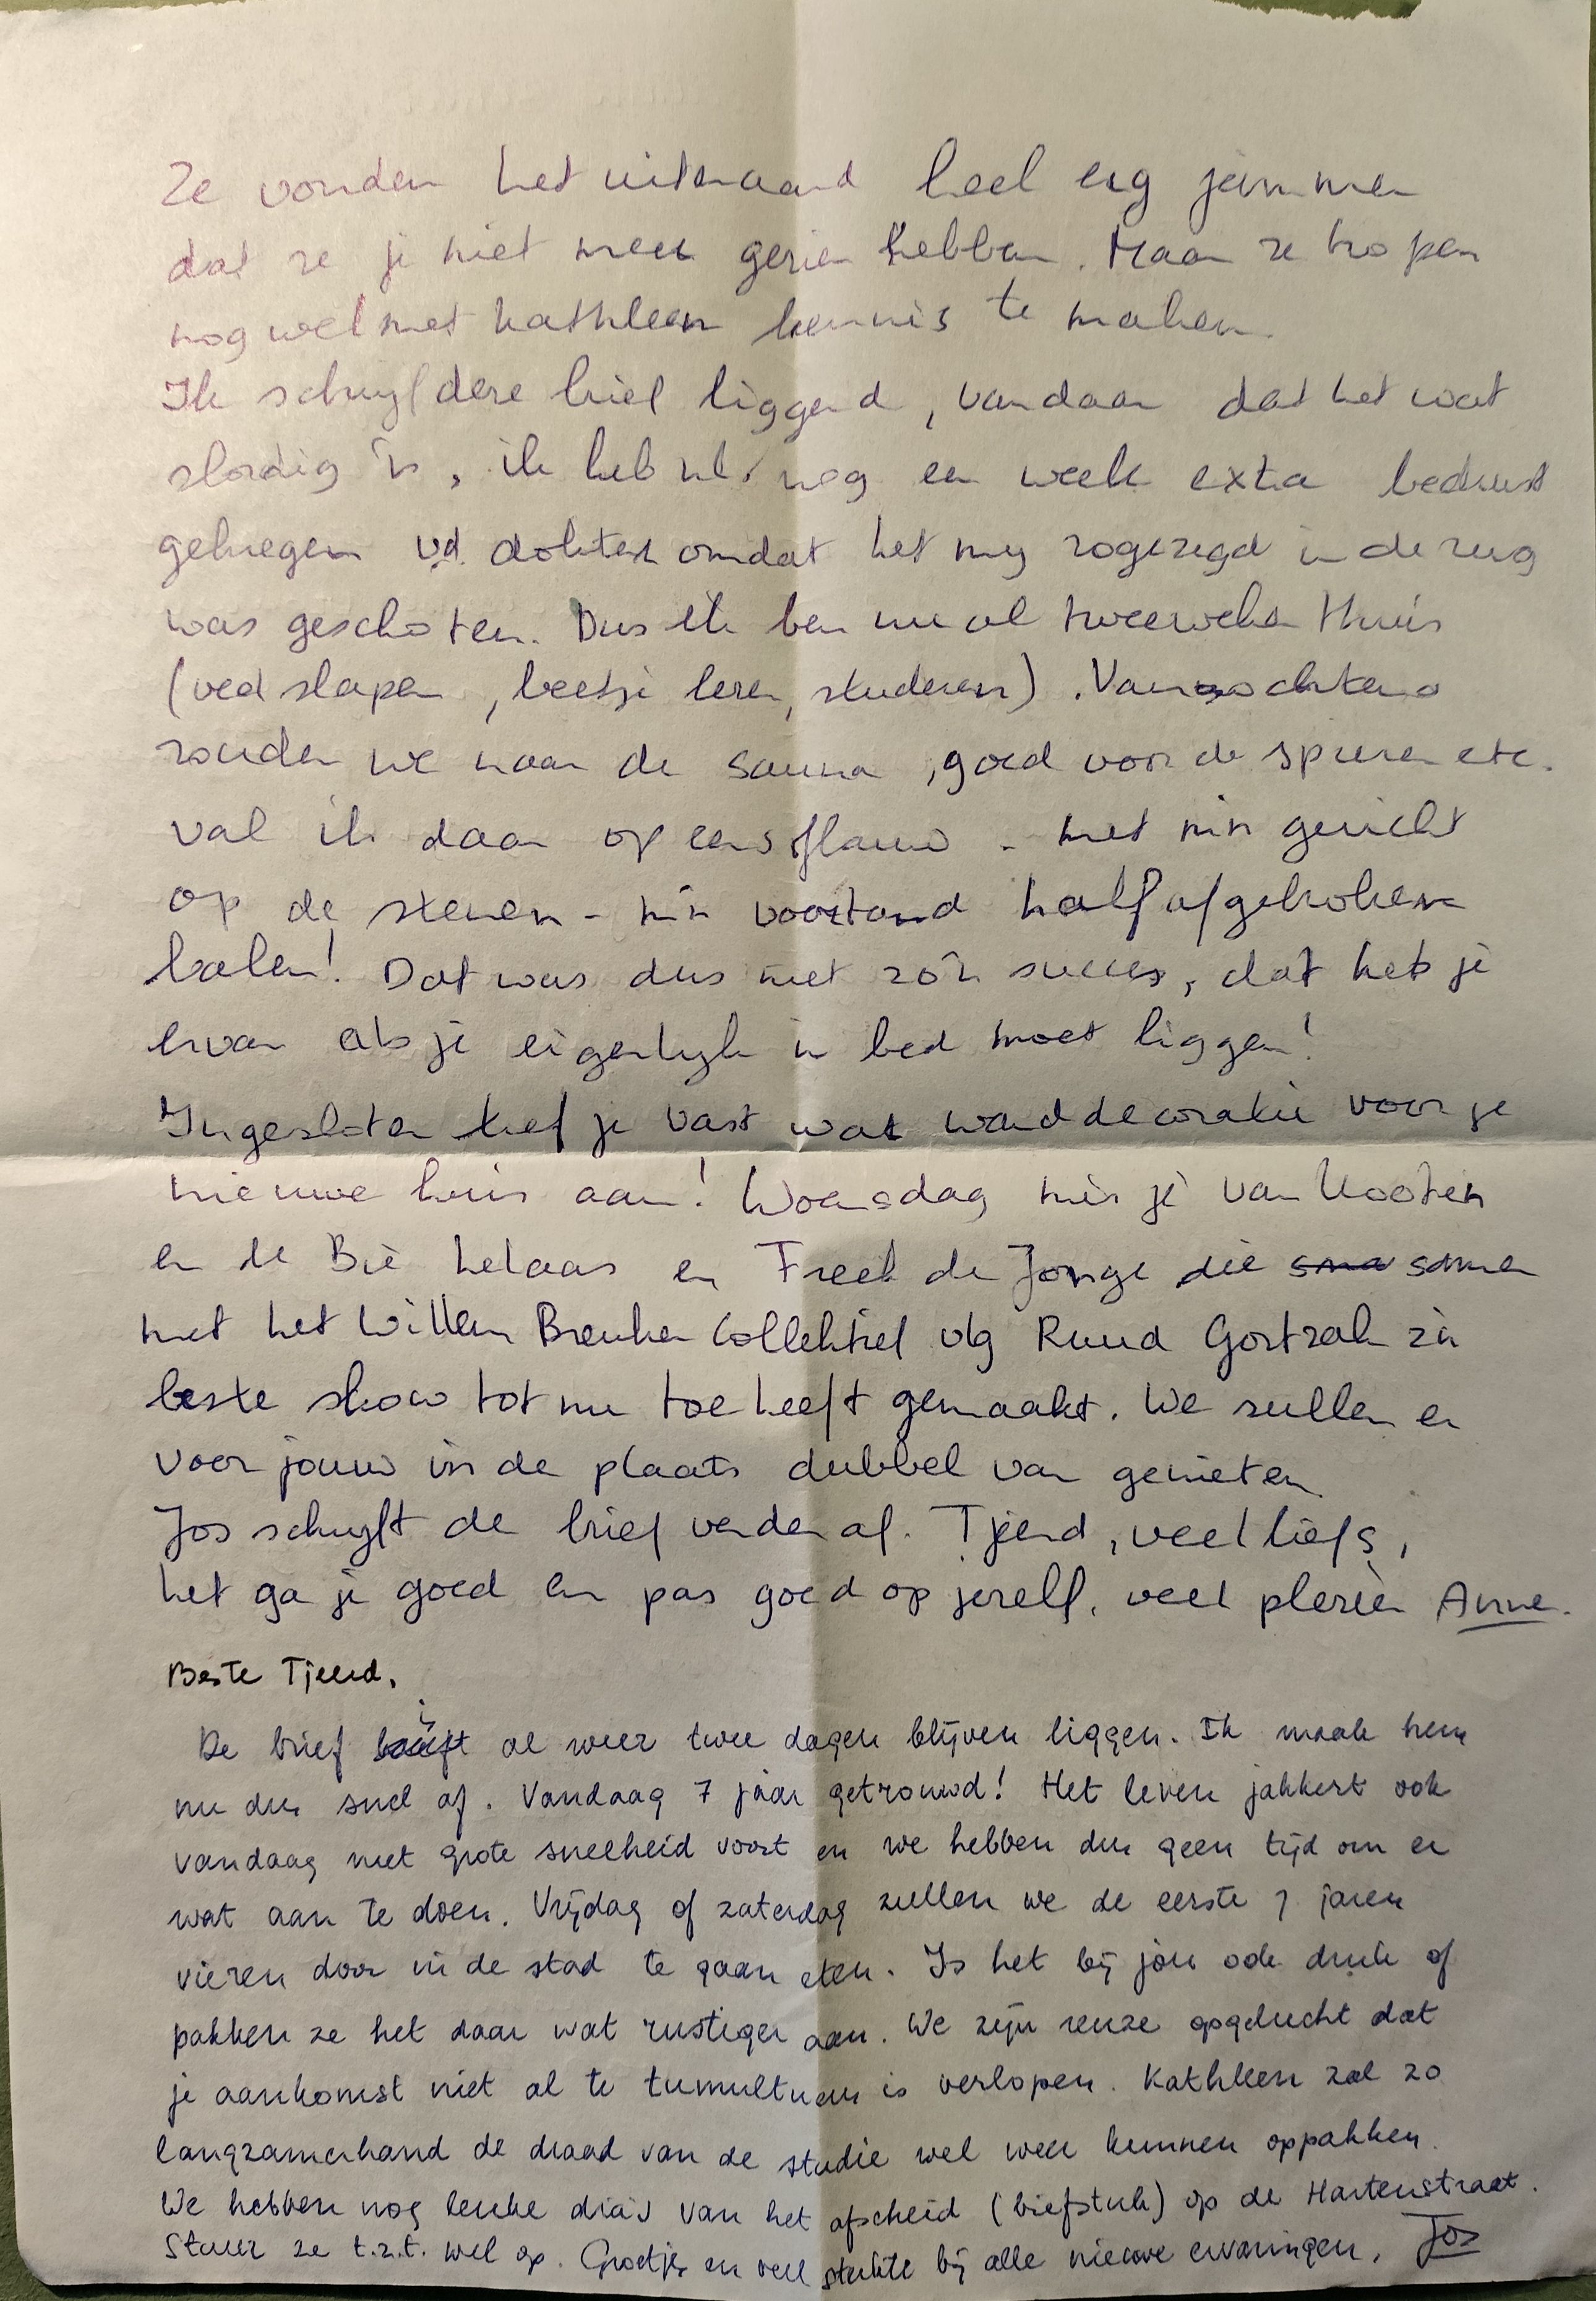 Ze vonden het uiteraard heel erg jammer
dat ze je niet meer gezien hebben. Maar ze hopen
nog wel met Kathleen kennis te maken.
Ik schrijf deze brief liggend, vandaar dat het wat
slordig is, ik heb nl. nog een week extra bedrust
gekregen vd. dokter omdat het mij zogezegd in de rug
was geschoten. Dus ik ben nu al twee weken thuis
(veel slapen, beetje lezen, studeren). Vanochtend
zouden we naar de sauna, goed voor de spieren etc.
val ik daar opeens flauw - met m'n gezicht
op de stenen - m'n voortand half afgebroken
balen! Dat was dus niet zo'n succes, dat heb je
ervan als je eigenlijk in bed moet liggen!
Ingesloten tref je vast wat wanddecoratie voor je
nieuwe huis aan! Woensdag mis je van Kooten
en de Bie helaas en Freek de Jonge die samen
met het Willem Breuker Collektief vlg Ruud Gortzak z'n
beste show tot nu toe heeft gemaakt. We zullen er
voor jouw in de plaats dubbel van genieten
Jos schrijft de brief verder af. Tjeerd, veel liefs,
het ga je goed en pas goed op jezelf, veel plezier Anne.
Beste Tjeerd,
De brief is al weer twee dagen blijven liggen. Ik maak hem
nu dus snel af. Vandaag 7 jaar getrouwd! Het leven jakkert ook
vandaag met grote snelheid voort en we hebben dus geen tijd om er
wat aan te doen. Vrijdag of zaterdag zullen we de eerste 7 jaren
vieren door in de stad te gaan eten. Is het bij jou ook druk of
pakken ze het daar wat rustiger aan. We zijn reuze opgelucht dat
je aankomst niet al te tumultueus is verlopen. Kathleen zal zo
langzamerhand de draad van de studie wel weer kunnen oppakken.
We hebben nog leuke dia's van het afscheid (biefstuk) op de Hartenstraat.
Stuur ze t.z.t. wel op. Groetjes en veel sterkte bij alle nieuwe ervaringen. Jos